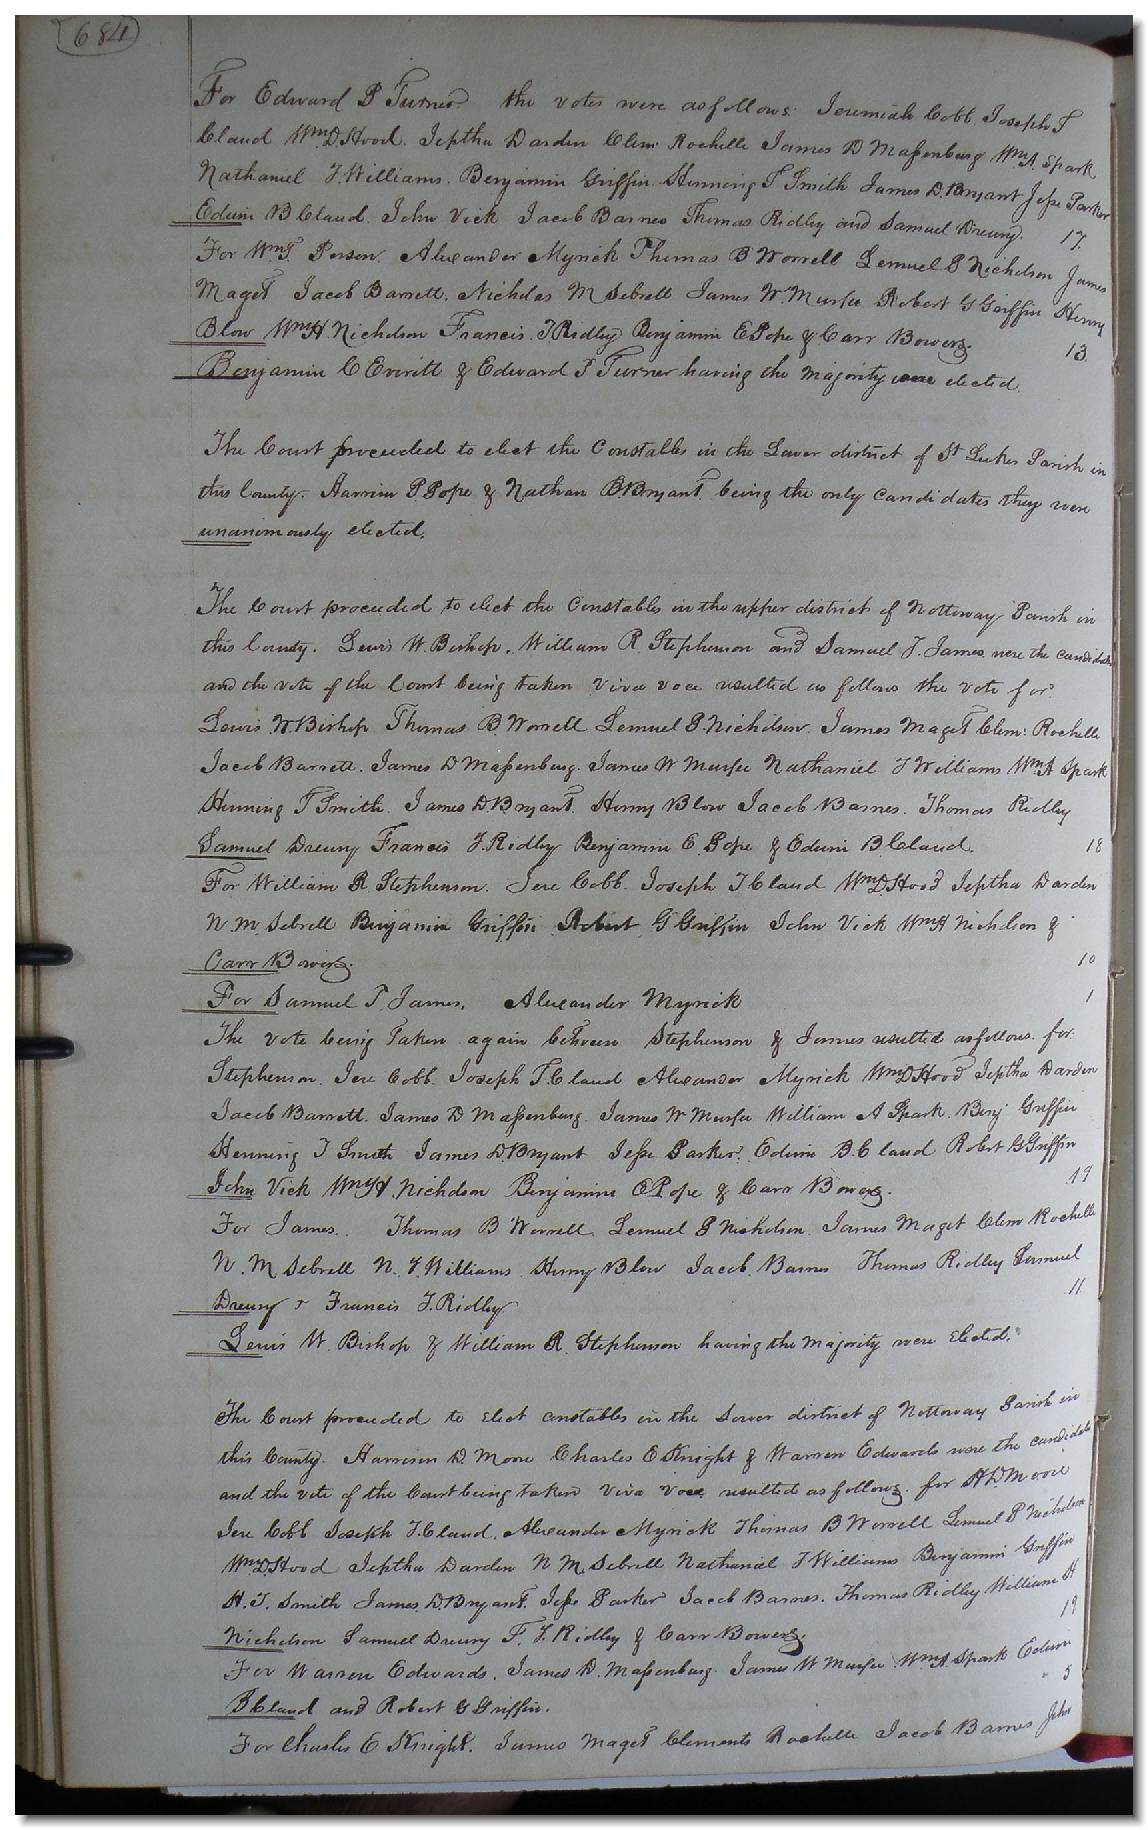 684
For Edward P Turner the votes were as follows: Jeremiah Cobb. Joseph T
Claud Wm D. Hood. Jeptha Darden Clem: Rochelle James D Massenburg Wm A. Spark
Nathaniel T. Williams. Benjamin Griffin. Henning T Smith James D. Bryant Jesse Parker
Edwin B Claud. John Vick Jacob Barnes Thomas Ridley and Samuel Drewry. 17.
For Wm T. Person. Alexander Myrick Thomas B Worrell Lemuel P Nicholson James
Maget Jacob Barrett. Nicholas M Sebrell James W Murfee Robert G Griffin Henry
Blow Wm H Nicholson Francis. T. Ridley Benjamin E Pope & Carr Bowers. 13
Benjamin C Everitt & Edward P Turner having the majority were elected.
The Court proceeded to elect the Constables in the Lower district of St Lukes Parish in
this County. Harrison P. Pope & Nathan B Bryant being the only candidates they were
unanimously elected.
The Court proceeded to elect the Constables in the upper district of Nottoway Parish in
this County. Lewis W. Bishop. William R. Stephenson and Samuel T. James were the candidates
and the vote of the Court being taken viva voce resulted as follows the vote for
Lewis W. Bishop Thomas B. Worrell Lemuel P. Nicholson. James Maget Clem: Rochelle
Jacob Barrett. James D Massenburg. James W Murfee Nathaniel T Williams Wm A Spark
Henning T Smith. James D. Bryant Henry Blow Jacob Barnes. Thomas Ridley
Samuel Drewry Francis T. Ridley Benjamin E. Pope & Edwin B. Claud. 18
For William R. Stephenson. Jere Cobb. Joseph T Claud Wm D. Hood Jeptha Darden
N. M. Sebrell Benjamin Griffin Robert G Griffin John Vick Wm H Nicholson &
Carr Bowers. 10
For Samuel T James. Alexander Myrick 1
The vote being taken again between Stephenson & James resulted as follows. for
Stephenson. Jere Cobb. Joseph T. Claud Alexander Myrick Wm D Hood Jeptha Darden
Jacob Barrett. James D Massenburg. James W Murfee William A Spark. Benj Griffin
Henning T Smith James D. Bryant Jesse Parker. Edwin B. Claud Robert G Griffin
John Vick Wm H Nicholson Benjamin E. Pope & Carr Bowers. 19
For James. Thomas B Worrell. Lemuel P Nicholson. James Maget Clem Rochelle
N. M Sebrell N. T. Williams Henry Blow Jacob. Barnes Thomas Ridley Samuel
Drewry & Francis T. Ridley 11
Lewis W. Bishop & William R. Stephenson having the majority were elected.
The Court proceeded to elect constables in the Lower district of Nottoway Parish in
this County. Harrison D. Moore Charles E Knight & Warren Edwards were the candidates
and the vote of the Court being taken viva voce resulted as follows. for H D. Moore
Jere Cobb Joseph T. Claud. Alexander Myrick Thomas B Worrell Lemuel P Nicholson
Wm D Hood Jeptha Darden N M. Sebrell Nathaniel T Williams Benjamin Griffin
H. T. Smith James. D. Bryant. Jesse Parker Jacob Barnes. Thomas Ridley William H
Nicholson Samuel Drewry F. T. Ridley & Carr Bowers. 19
For Warren Edwards. James D. Massenburg. James W Murfee Wm A. Spark Edwin
B Claud and Robert G Griffin. 5
For Charles E Knight. James Maget Clements Rochelle Jacob Barnes John